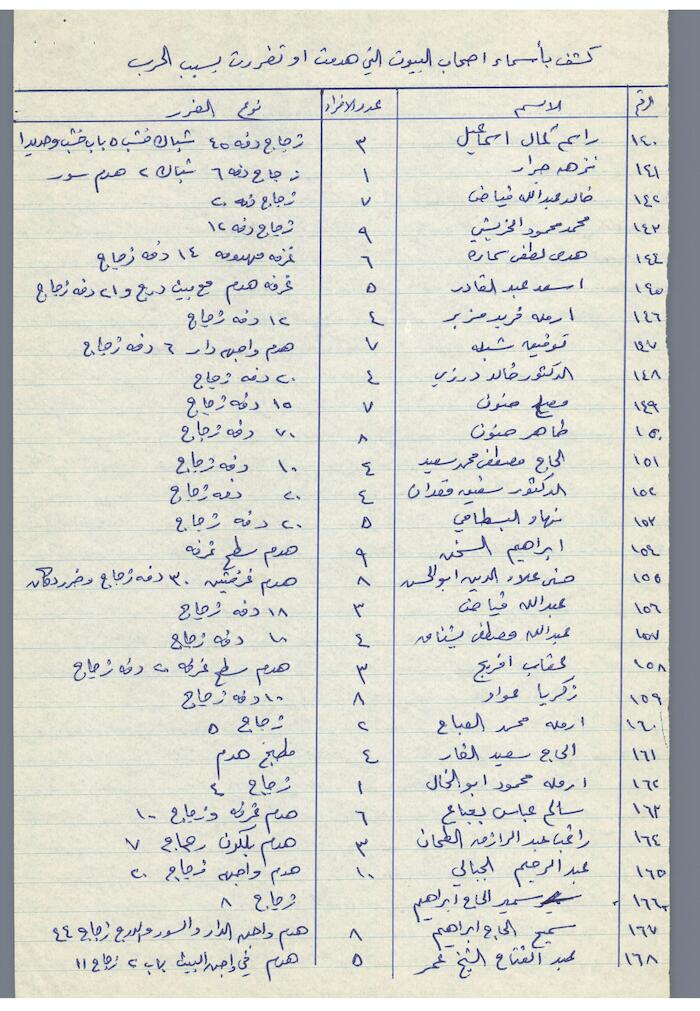 كشف بأسماء اصحاب البيوت التي هدمت او تضررت بسبب الحرب
الرقم الاسم عدد الافراد نوع الضرر
١٤٠ راسم كمال اسماعيل ٣ زجاج دفه ٤٥ شباك خشب ٥ باب خشب وحديد ١
١٤١ نزهه جرار ١ زجاج دفه ٦ شباك ٢ هدم سور
١٤٢ خالد عبدالله فياض ٧ زجاج دفه ٢٠
١٤٣ محمد محمود الخريشي ٩ زجاج دفه ١٢
١٤٤ هدى لطفي سماره ٦ غرفه مهدومه ١٤ دفه زجاج
١٤٥ اسعد عبد القادر ٥ غرفه هدم مع بيت درج و ٢١ دفه زجاج
١٤٦ ارمله فريد مزبر ٤ ١٢ دفه زجاج
١٤٧ توفيق ٧ هدم واجهه دار ٦ دفه زجاج
١٤٨ الدكتور خالد درزي ٤ ٢٠ دفه زجاج
١٤٩ صنون ٧ ١٥ دفه زجاج
١٥٠ طاهر صنون ٨ ٧٠ دفه زجاج
١٥١ الحاج مصطفى محمد سعيد ٤ ١٠ دفه زجاج
١٥٢ الدكتور شفيق قعدان ٤ ٢٠ دفه زجاج
١٥٣ نهاد البسطامي ٥ ٢٠ دفه زجاج
١٥٤ ابراهيم السخن ٩ هدم سطح غرفه
١٥٥ حسني علاء الدين ابوالحسن ٨ هدم غرفتين ٣٠ دفه زجاج وضرر دكان
١٥٦ عبدالله فياض ٣ ١٨ دفه زجاج
١٥٧ عبدالله مصطفى بشناق ٤ ١٠ دفه زجاج
١٥٨ عقاب افريج ٣ هدم سطح غرفه ٢٠ دفه زجاج
١٥٩ زكريا عواد ٨ ١٠ دفه زجاج
١٦٠ ارمله محمد الصباح ٢ زجاج ٥
١٦١ الحاج سعيد الفار ٤ مطبخ هدم
١٦٢ ارمله محمود ابو الخال ١ زجاج ٤
١٦٣ سالم عباس بعباع ٦ هدم غرفه وزجاج ١٠
١٦٤ راغب عبد الرازق الطحان ٣ هدم بلكون زجاج ٧
١٦٥ عبد الرحيم الجبالي ١٠ هدم واجهه زجاج ٢٠
١٦٦ سمير الحاج ابراهيم زجاج ٨
١٦٧ سميح الحاج ابراهيم ٨ هدم واجهة الدار والسور والدرج زجاج ٤٤
١٦٨ عبد الفتاح الشيخ عمر ٥ هدم في واجهة البيت باب ٢ زجاج ١١